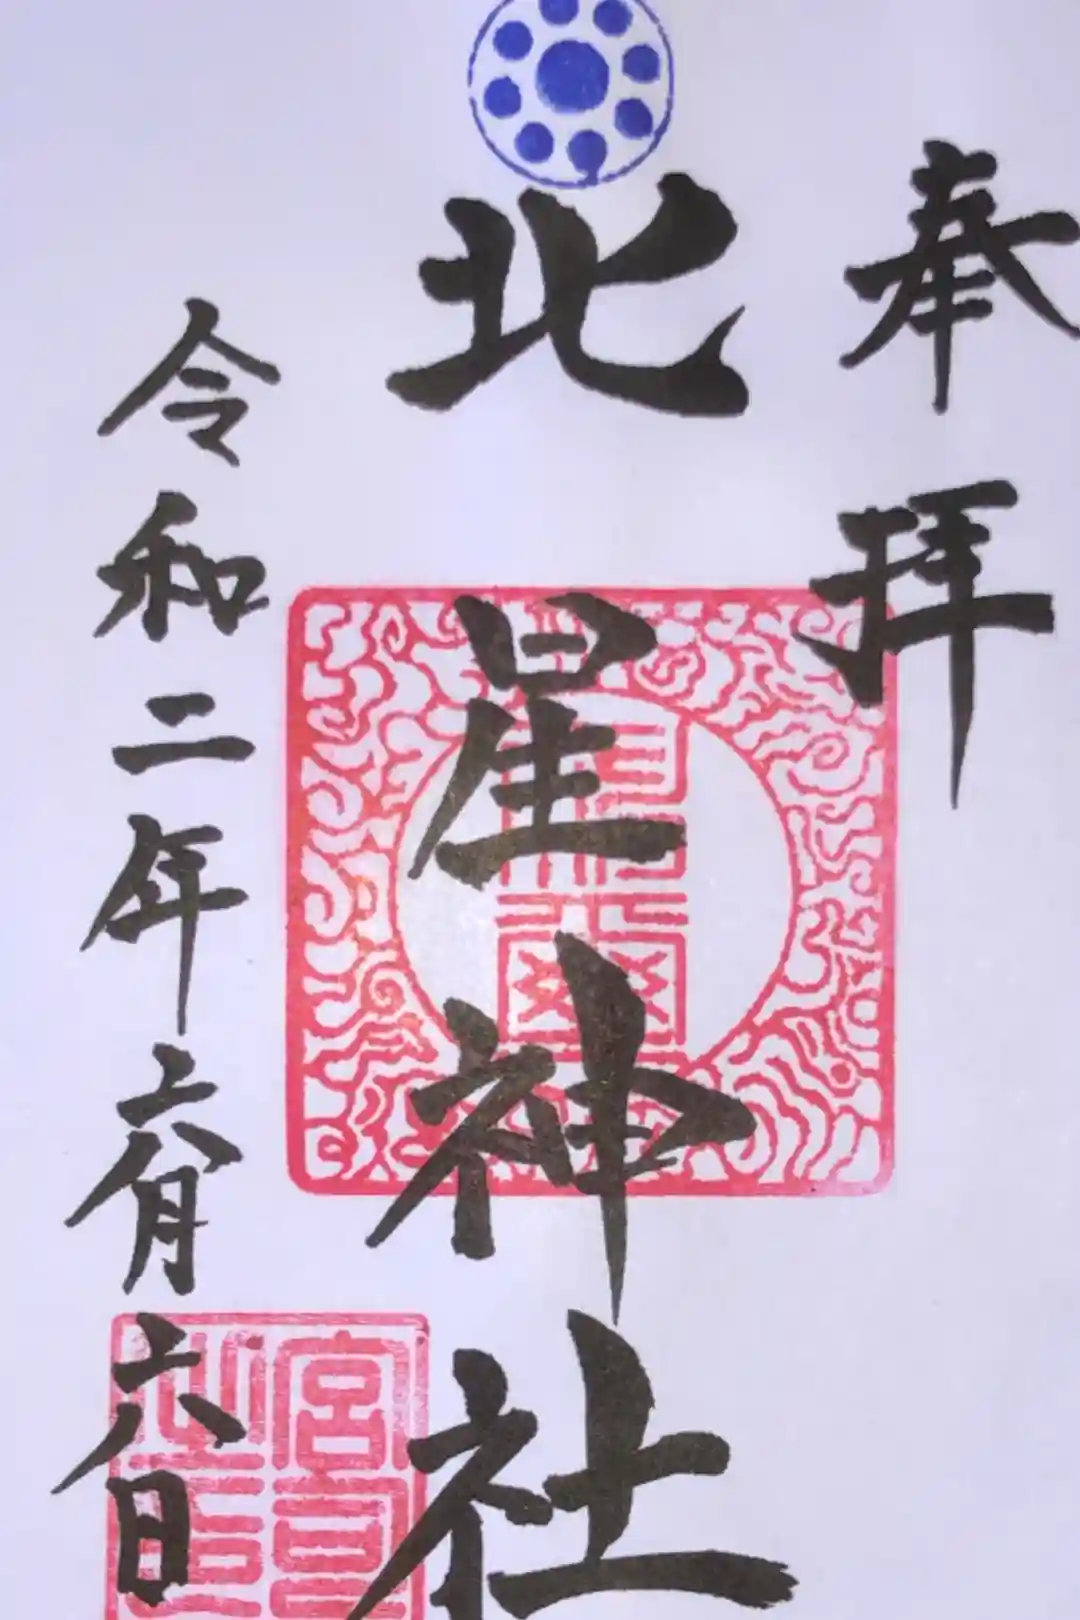 奉拝
北星神社
令和二年六月六日
宮司之印